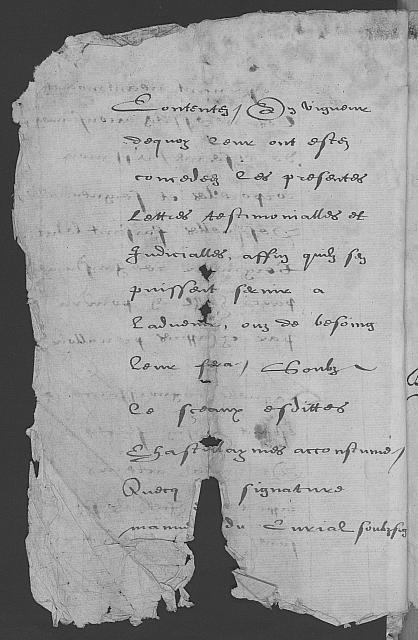 Contentez / En vigueur
dequoy leur ont estez
concedez les presentes
Lettres testimonialles et
Judicialles, affin quilz sen
puissent servir a
ladvenir, ou de besoing
leur sera / Soubz
le sceaux esdittes
Chastellaynies accoustumé /
Avecq signature
manu du Curial soubzsig